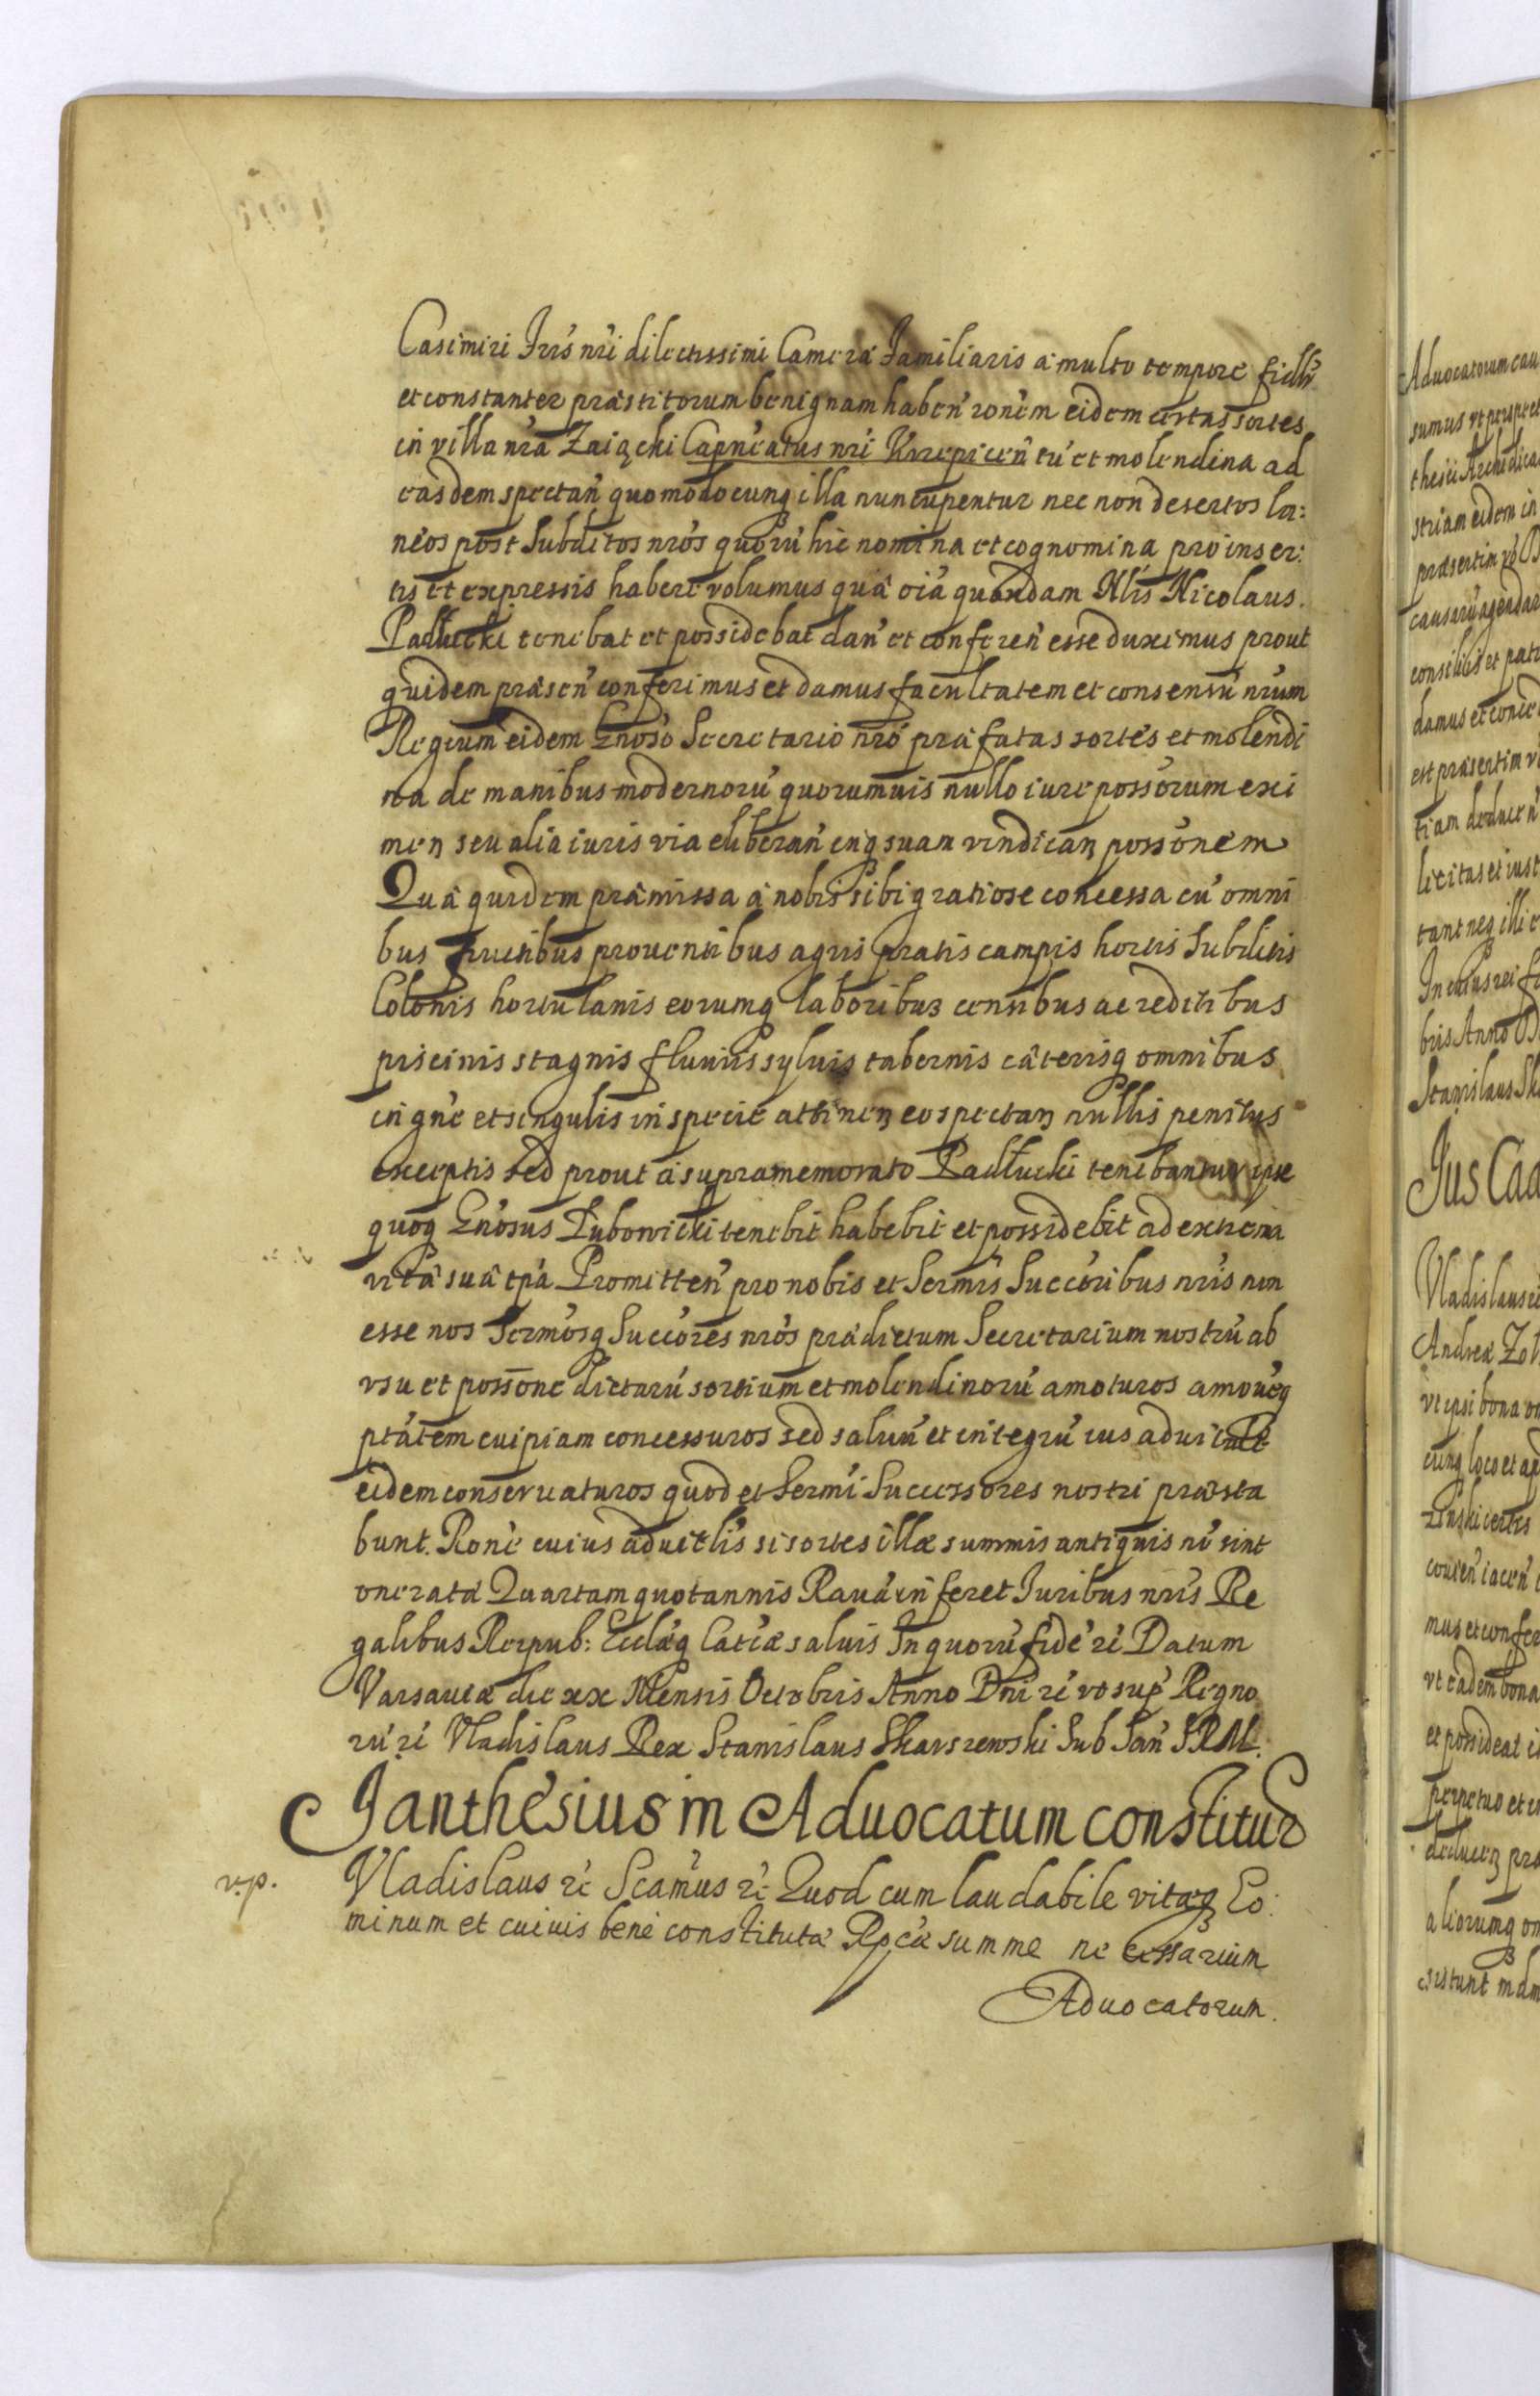 Casimiri Fris nri dilectissimi Cameræ Familiaris a multo tempore fidlr
et constanter præstitorum benignam haben ronem eidem certas sortes
in villa nra Zaiączki Capneatus nri Krzepicen tu et molendina ad
easdem spectan quomodocunq illa nuncupentur nec non desertos la:
neos post Subditos nros quoru hic nomina et cognomina pro inser:
tis et expressis habere volumus quæ oia quondam Nlis Nicolaus.
Padłucki tenebat et possidebat dan et conferen esse duximus prout
quidem præsen conferimus et damus facultatem et consensu nrum
Regium eidem Gnoso Secretario nro præfatas sortes et molendi
na de manibus modernoru quorumuis nullo iure possorum exi
men seu alia iuris via eliberan inq suam vindican possonem
Quæ quidem præmissa a nobis sibi gratiose concessa cu omni
bus fructibus prouentibus agris pratis campis hortis Subditis
Colonis hortulanis eorumq laboribus censibus ac reditibus
piscinis stagnis fluuiis syluis tabernis cæterisq omnibus
in gne et singulis in specie attinen eo spectan nullis penitus
exceptis sed prout a supramemorato Padłucki tenebantur ipse
quoq Gnosus Lubowicki tenebit habebit et possidebit ad extrema
vitæ suæ tpa Promitten pro nobis et Sermis Succoribus nris non
esse nos Sermosq Succores nros prædictum Secretarium nostru ab
vsu et possone dictaru sortium et molendinoru amoturos amoueq
ptatem cuipiam concessuros sed saluu et integru ius aduitale
eidem conseruaturos quod et Sermi Successores nostri præsta
bunt. Rone cuius aduitlis si sortes illæ summis antiquis no sint
oneratæ Quartam quotannis Rauæ inferet Iuribus nris Re
galibus Reipub: Ecclæq Catcæ saluis In quoru fide rc Datum
Varsauiæ die xx Mensis Octobris Anno Dni rc vt sup Regno
ru rc Vladislaus Rex Stanislaus Skarszewski Sub San SRM.
Janthesius in Aduocatum constitur
v.p.
Vladislaus rc Scamus rc Quod cum laudabile vitæq Eo:
minum et cuiuis bene constitutæ Rpcæ summe necessarium
Aduocatorum.
Aduocatorum cau
sumus vt perspect
thesii Archidica
striam eidem in
præsertim vo
causaru agendar
consiliis et patr
damus et conced
est præsertim v
tiam deducen
licitas et iust
tant neq illi c
In cuius rei f
bris Anno D
Stanislaus Sk
Jus Cad
Vladislaus
Andreæ Zol
vt ipsi bona o
cunq loco et ap
mus et confer
vt eadem bona
et possideat i
perpetuo et i
deducen pro
aliorumq om